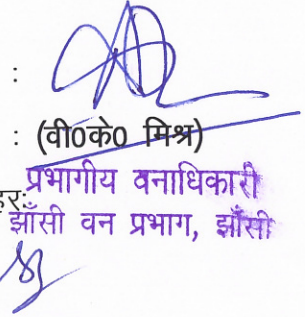 :
: (वी0के0 मिश्र)
प्रभागीय वनाधिकारी
हर:
झाँसी वन प्रभाग, झाँसी